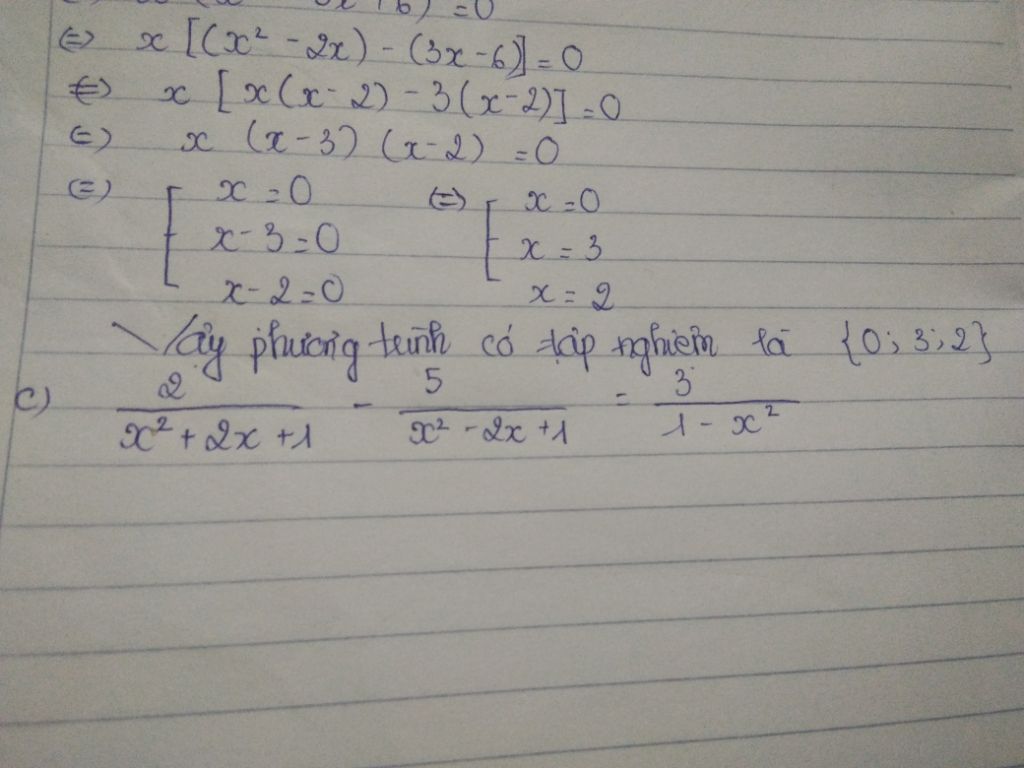 x + 6) = 0
(=) x [(x² - 2x) - (3x - 6)] = 0
(=) x [x(x - 2) - 3(x - 2)] = 0
(=) x (x - 3) (x - 2) = 0
(=) [ x = 0 (=) [ x = 0
x - 3 = 0 x = 3
x - 2 = 0 x = 2
Vậy phương trình có tập nghiệm là {0; 3; 2}
c) 2/(x² + 2x + 1) - 5/(x² - 2x + 1) = 3/(1 - x²)